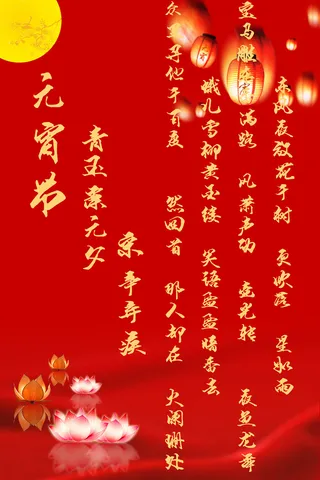 元宵节
青玉案元夕
宋辛弃疾
东风夜放花千树 更吹落 星如雨
宝马雕车香满路 凤萧声动 壶光转 夜鱼龙舞
蛾儿雪柳黄金缕 笑语盈盈暗香去
众里寻他千百度 然回首 那人却在 火阑珊处